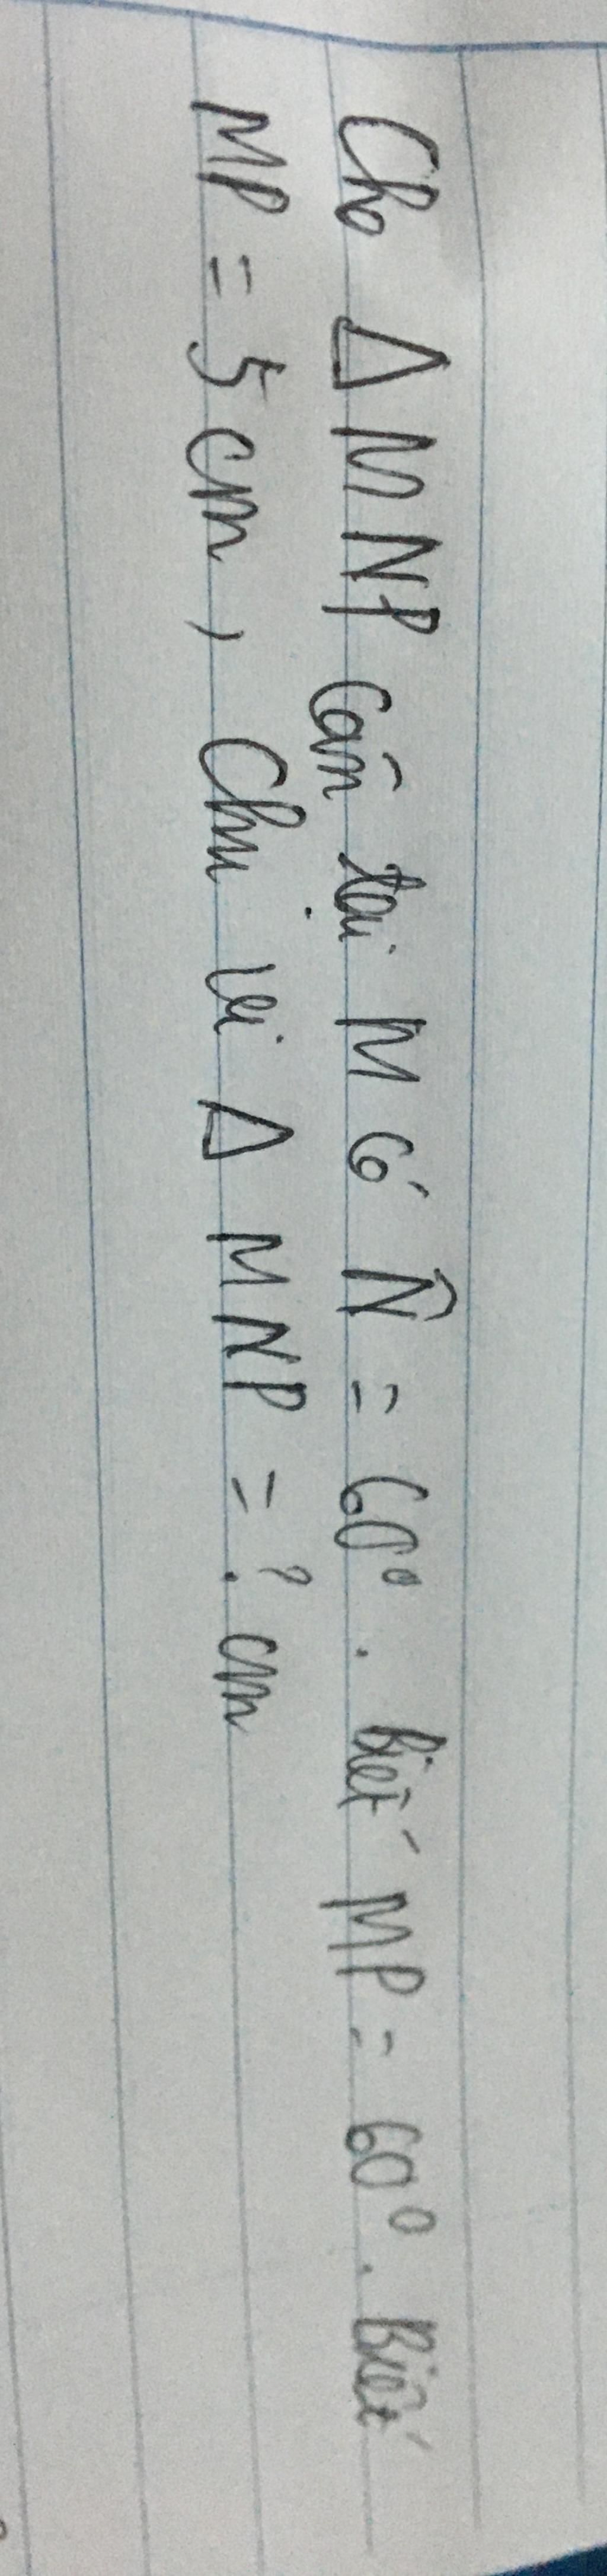 Cho Δ MNP cân tại M có N̂ = 60⁰. biết MP = 60⁰. Biết
MP = 5 cm, Chu vi Δ MNP = ? cm